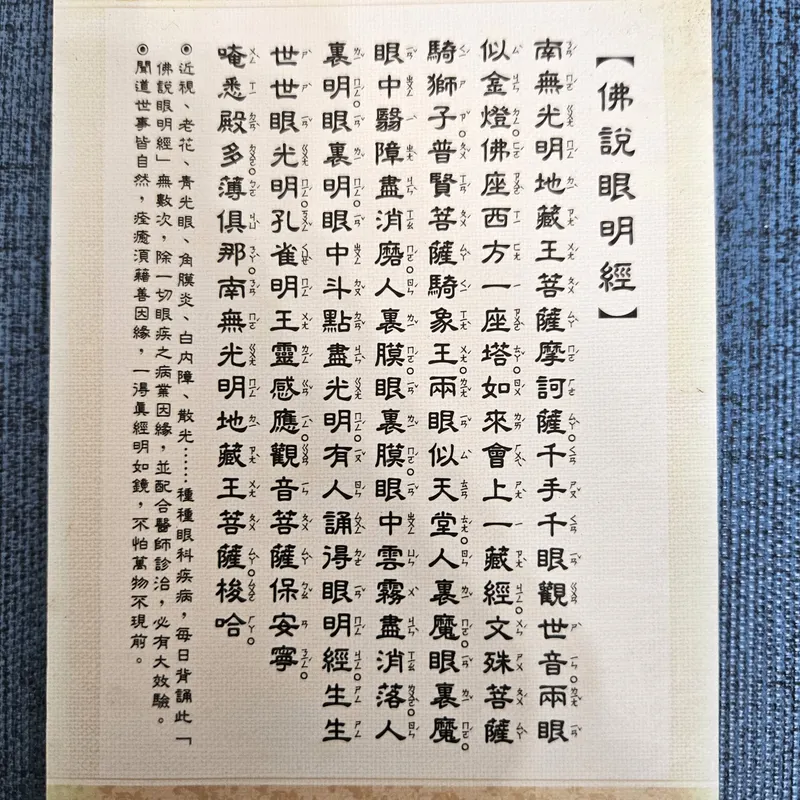 【佛說眼明經】
南無光明地藏王菩薩摩訶薩。千手千眼觀世音。兩眼
似金燈。佛座西方一座塔。如來會上一藏經。文殊菩薩
騎獅子。普賢菩薩騎象王。兩眼似天堂。人裏魔。眼裏魔。
眼中翳障盡消磨。人裏膜。眼裏膜。眼中雲霧盡消落。人
裏明。眼裏明。眼中斗點盡光明。有人誦得眼明經。生生
世世眼光明。孔雀明王靈感應。觀音菩薩保安寧。
唵悉殿多。薄俱那。南無光明地藏王菩薩。梭哈。
◉近視、老花、青光眼、角膜炎、白內障、散光……種種眼科疾病，每日背誦此「
佛說眼明經」無數次，除一切眼疾之病業因緣，並配合醫師診治，必有大效驗。
◉聞道世事皆自然，痊癒須藉善因緣，一得真經明如鏡，不怕萬物不現前。